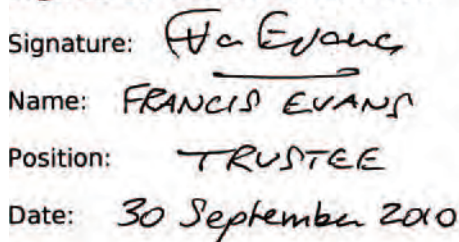 Signature: Evans
Name: FRANCIS EVANS
Position: TRUSTEE
Date: 30 September 2010